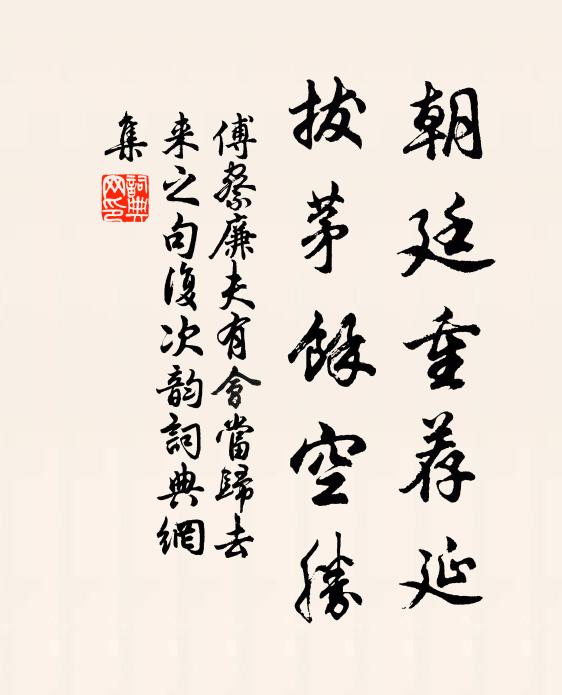 朝廷重荐延
拔茅餘空勝
傅察廉夫有會當歸去
来之句復次韵詞典網
集
詞典
网印